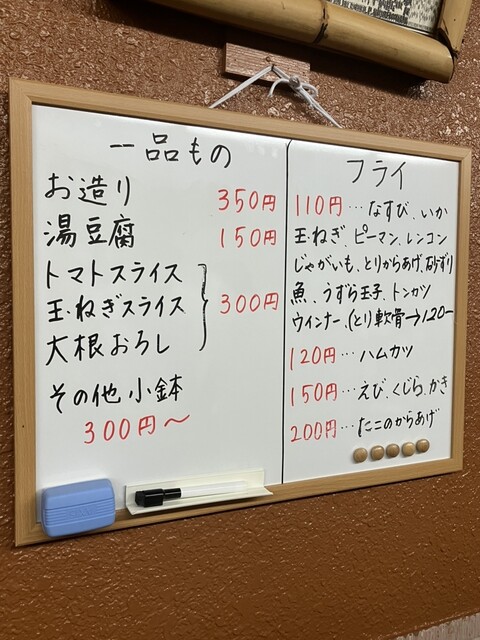 一品もの
お造り 350円
湯豆腐 150円
トマトスライス
玉ねぎスライス 300円
大根おろし
その他小鉢
300円〜
フライ
110円…なすび、いか
玉ねぎ、ピーマン、レンコン
じゃがいも、とりからあげ、
魚、うずら玉子、トンカツ
ウインナー、(とり軟骨→120-
120円…ハムカツ
150円…えび、くじら、かき
200円…たこのからあげ